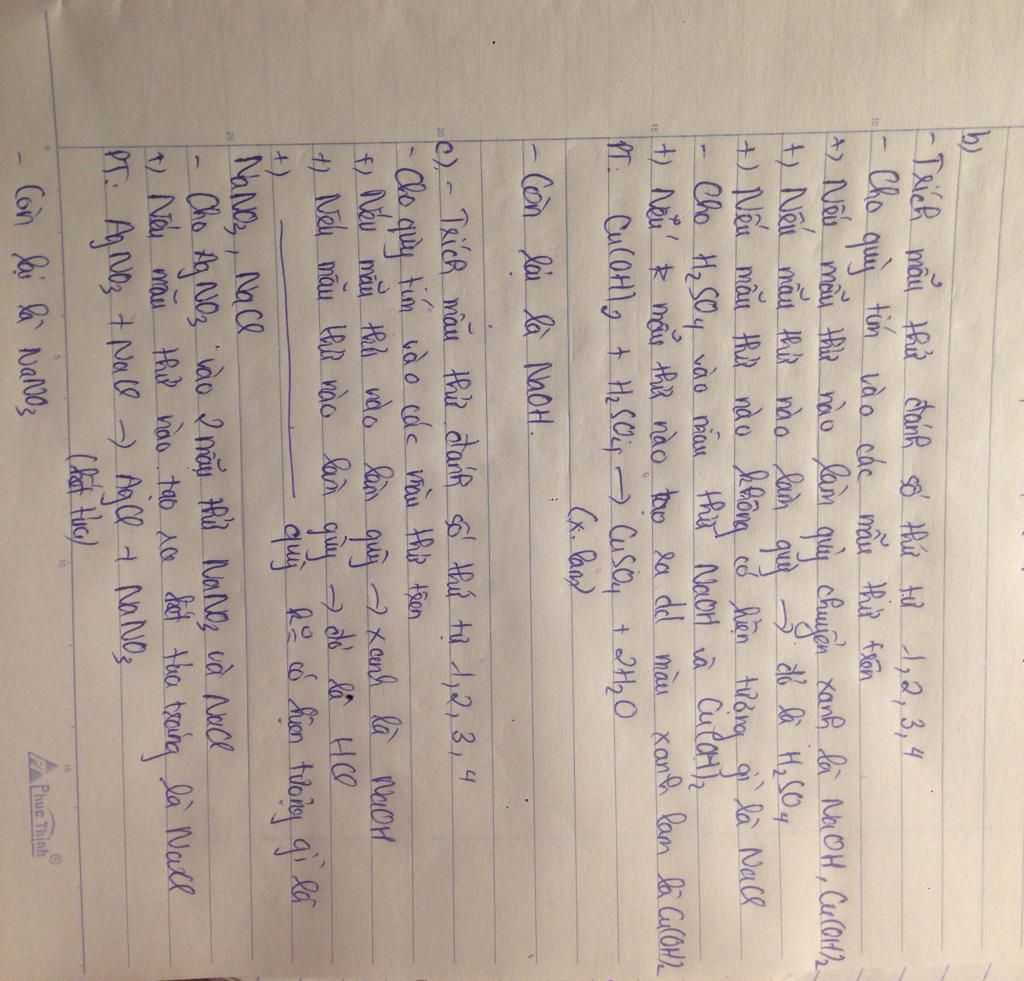 b)
- Trích mẫu thử đánh số thứ tự 1, 2, 3, 4
- Cho quỳ tím vào các mẫu thử trên
+) Nếu mẫu thử nào làm quỳ chuyển xanh là NaOH, Cu(OH)2
+) Nếu mẫu thử nào làm quỳ → đỏ là H2SO4
+) Nếu mẫu thử nào không có hiện tượng gì là NaCl
- Cho H2SO4 vào mẫu thử NaOH và Cu(OH)2
+) Nếu mẫu thử nào tạo ra dd màu xanh lam là Cu(OH)2
PT: Cu(OH)2 + H2SO4 → CuSO4 + 2H2O
(x. lam)
- Còn lại là NaOH.
c) - Trích mẫu thử đánh số thứ tự 1, 2, 3, 4
- Cho quỳ tím vào các mẫu thử trên
+) Nếu mẫu thử nào làm quỳ → xanh là NaOH
+) Nếu mẫu thử nào làm quỳ → đỏ là HCl
+) ______ quỳ ko có hiện tượng gì là
NaNO3, NaCl
- Cho AgNO3 vào 2 mẫu thử NaNO3 và NaCl
+) Nếu mẫu thử nào tạo ra kết tủa trắng là NaCl
PT: AgNO3 + NaCl → AgCl + NaNO3
(kết tủa)
- Còn lại là NaNO3
Phuc Thinh®